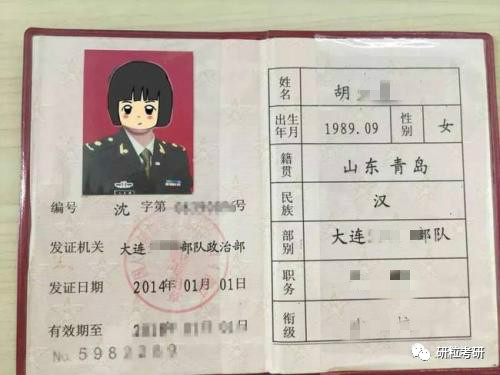 编号 沈 字第 号
发证机关 大连 部队政治部
发证日期 2014年01月01日
有效期至 01月01日
No. 5982289
姓名 胡
出生年月 1989.09 性别 女
籍贯 山东青岛
民族 汉
部别 大连 部队
职务
衔级
研粒考研